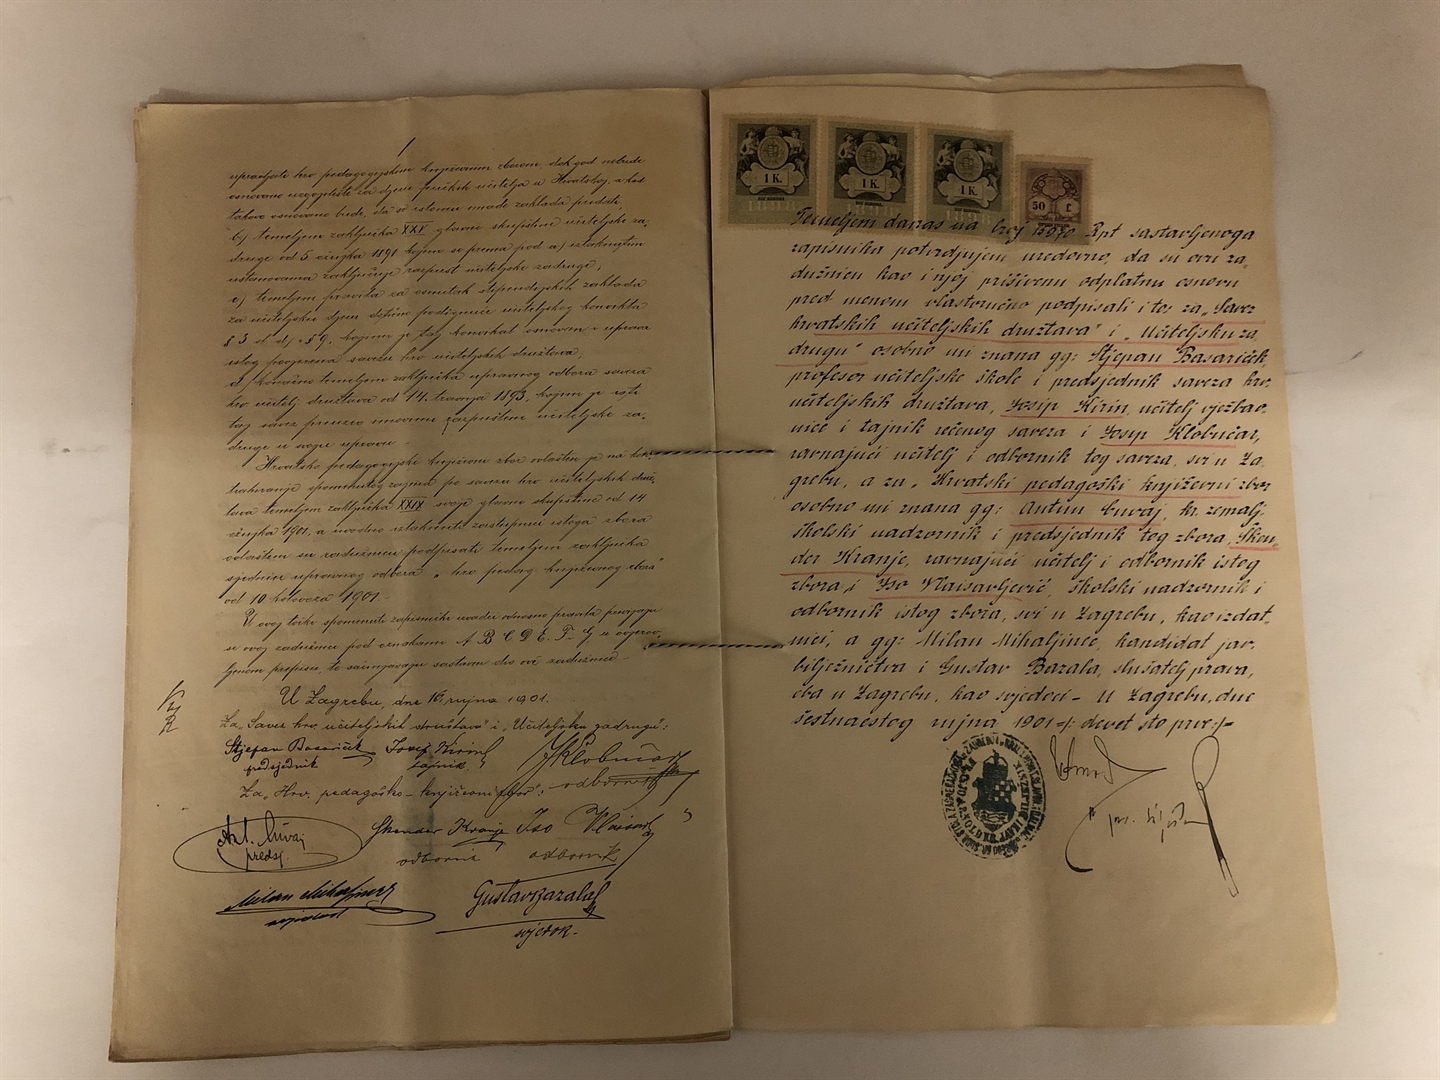 upravljate hrv pedagogijskim književnim zborom, dok god nebude
osnovano za djecu pučkih učitelja u Hrvatskoj, a kad
takovo osnovano bude, da se istomu imade zaklada predati,
b) temeljem zaključka XXV glavne skupštine učiteljske za-
druge od 5 ožujka 1891 kojim se prema pod a) istaknutim
ustanovama zaključuje razpust učiteljske zadruge,
c) temeljem pravila za osnutak stipendijskih zaklada
za učiteljsku djecu podignuća učiteljskog konvikta
§ 3 § 9. kojim je taj konvikat osnovan i uprava
istog povjerena savezu hrv učiteljskih društava,
d) konačno temeljem zaključka upravnog odbora saveza
hrv učitelj društava od 14. travnja 1893. kojim je
taj savez preuzeo imovinu razpuštene učiteljske za-
druge u svoju upravu.
Hrvatski pedagogijski književni zbor ovlašten je na kon-
trahiranje spomenutog zajma po savezu hrv učiteljskih druš-
tava temeljem zaključka XXIX svoje glavne skupštine od 14
ožujka 1901. a uvodno iztaknuti zastupnici istoga zbora
ovlašteni su zadužnicu podpisati temeljem zaključka
sjednice upravnog odbora "hrv pedag književnog zbora"
od 10 kolovoza 1901.-
U ovoj točki spomenuti zapisnički izvadci odnosno pravila prilježu
se ovoj zadužnici pod oznakama A B C D E F G u ovjerov-
ljenom prepisu, te sačinjavaju sastavni dio ove zadužnice.-
U Zagrebu, dne 16. rujna 1901.
Za "Savez hrv. učiteljskih društava" i "Učiteljsku zadrugu":
Stjepan Basariček Josip Kirin J Klobučar
predsjednik tajnik odbornik
Za "Hrv. pedagoško-književni zbor":
Ant. Cuvaj Skender Kranje Iso Vlaisavlj
predsj. odbornik odbornik
Milan Mihaljinec Gustav Bazala
svjedok svjedok.
1 K. 1 K. 1 K. 50 f
1898 1898 1898
Temeljem danas na broj Rpt sastavljenoga
zapisnika potvrdjujem uredovno, da su ovu za-
dužnicu kao i njoj prišivenu odplatnu osnovu
pred menom vlastoručno podpisali i to: za "Savez
hrvatskih učiteljskih družtava" i "Učiteljsku za,
drugu" osobno mi znana gg: Stjepan Basariček,
profesor učiteljske škole i predsjednik saveza hrv.
učiteljskih družtava, Josip Kirin, učitelj vježbao-
nice i tajnik rečenog saveza i Josip Klobučar,
ravnajući učitelj i odbornik tog saveza, svi u Za
grebu, a za "Hrvatski pedagoški književni zbor
osobno mi znana gg: Antun Cuvaj, kr. zemalj.
školski nadzornik i predsjednik tog zbora, Sken
der Kranje, ravnajući učitelj i odbornik istog
zbora i Iso Vlaisavljević, školski nadzornik i
odbornik istog zbora, svi u Zagrebu, kao izdat,
nici, a gg: Milan Mihaljinec, kandidat jav.
bilježničtva i Gustav Bazala, slušatelj prava,
oba u Zagrebu, kao svjedoci - U Zagrebu, dne
šestnaestog rujna 1901 /: devet sto prve :/-